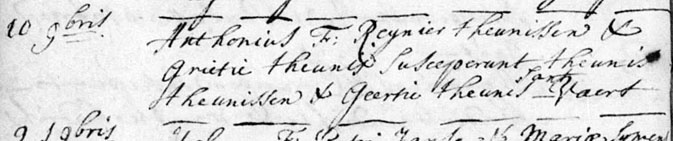 10 9bris Anthonius F: Reynier theunissen &
Grietie theunis susceperunt theunis
theunissen & Geertie theunis Jans Vaert
2 19bris F: Jansse & Mariæ Symen